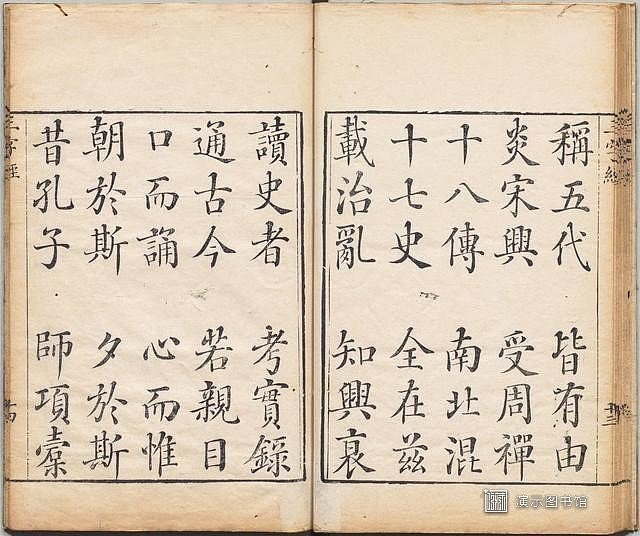 稱五代 皆有由
炎宋興 受周禪
十八傳 南北混
十七史 全在茲
載治亂 知興衰
讀史者 考實錄
通古今 若親目
口而誦 心而惟
朝於斯 夕於斯
昔孔子 師項橐
三字經
演示图书馆